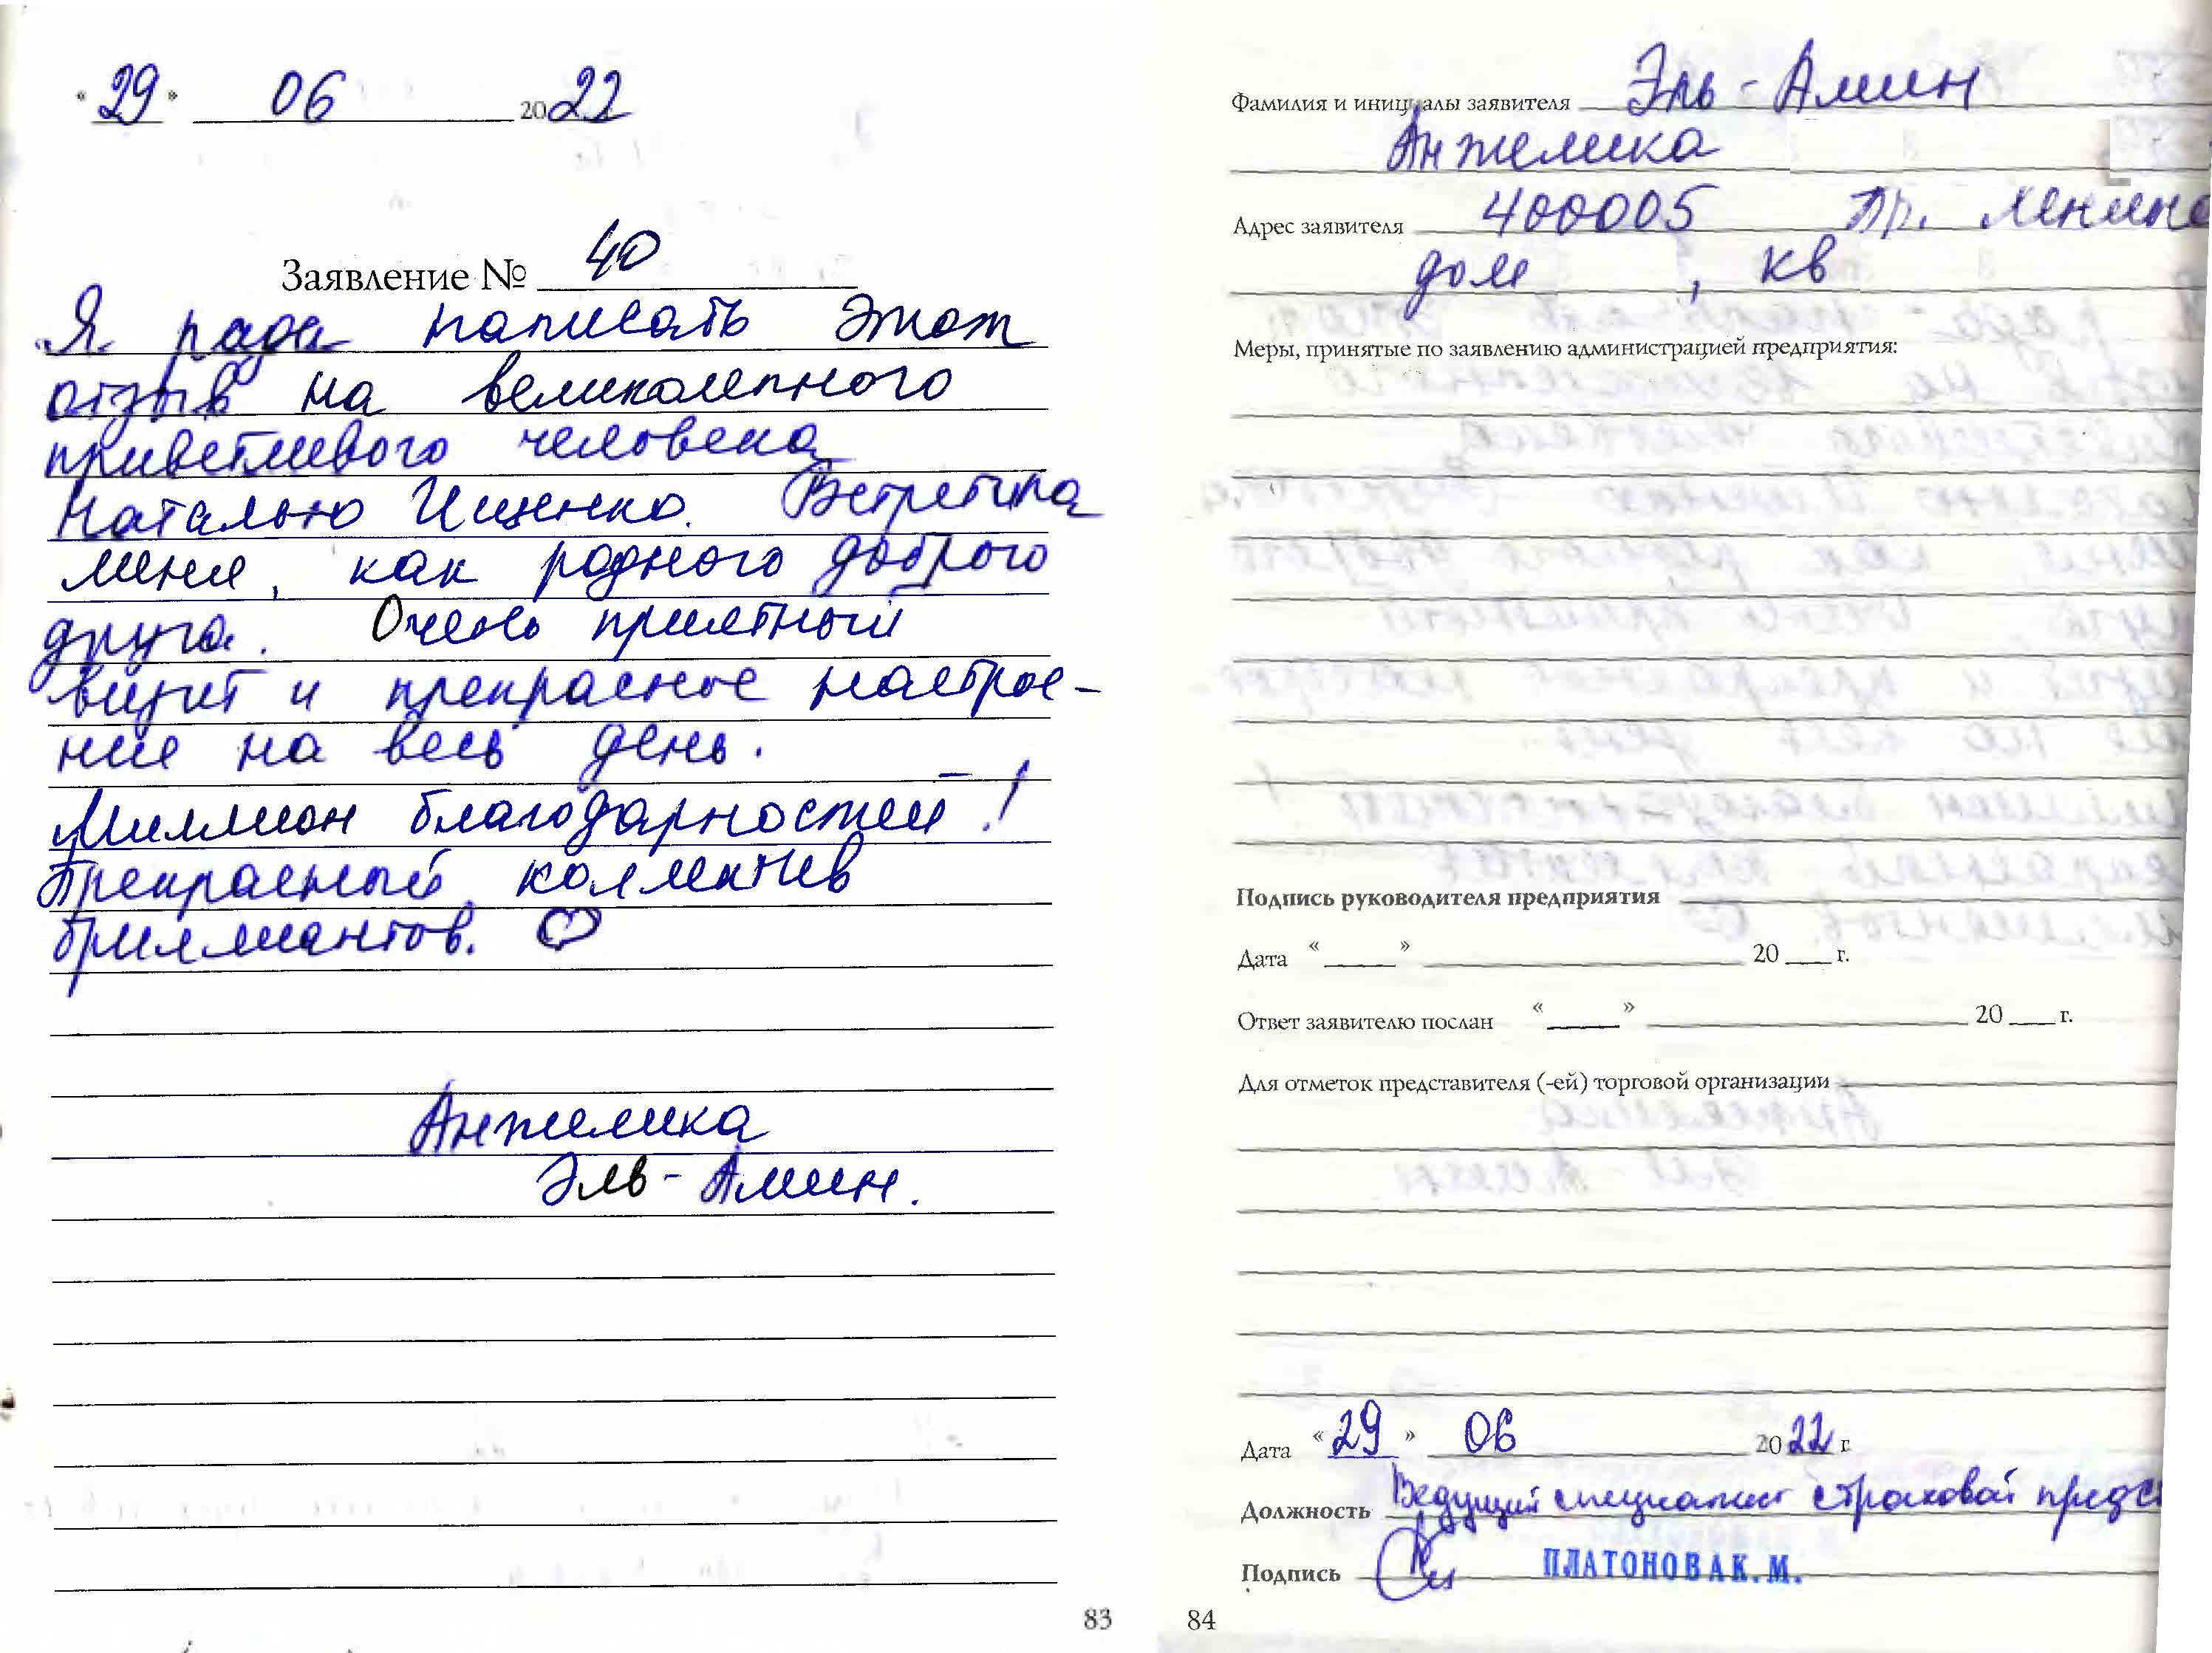 « 29 » 06 2022
Заявление № 40
Я рада написать этот
отзыв на великолепного
приветливого человека
Наталью Ищенко. Встретила
меня, как родного доброго
друга. Очень приятный
визит и прекрасное настрое-
ние на весь день.
Миллион благодарностей!
Прекрасный коллектив
бриллиантов.
Анжелика
Эль-Амин.
83
Фамилия и инициалы заявителя Эль-Амин
Анжелика
Адрес заявителя 400005 пр. Ленина
дом , кв
Меры, принятые по заявлению администрацией предприятия:
Подпись руководителя предприятия
Дата « » 20 г.
Ответ заявителю послан « » 20 г.
Для отметок представителя (-ей) торговой организации
Дата « 29 » 06 2022 г.
Должность Ведущий специалист страховой предс
Подпись ПЛАТОНОВА К.М.
84